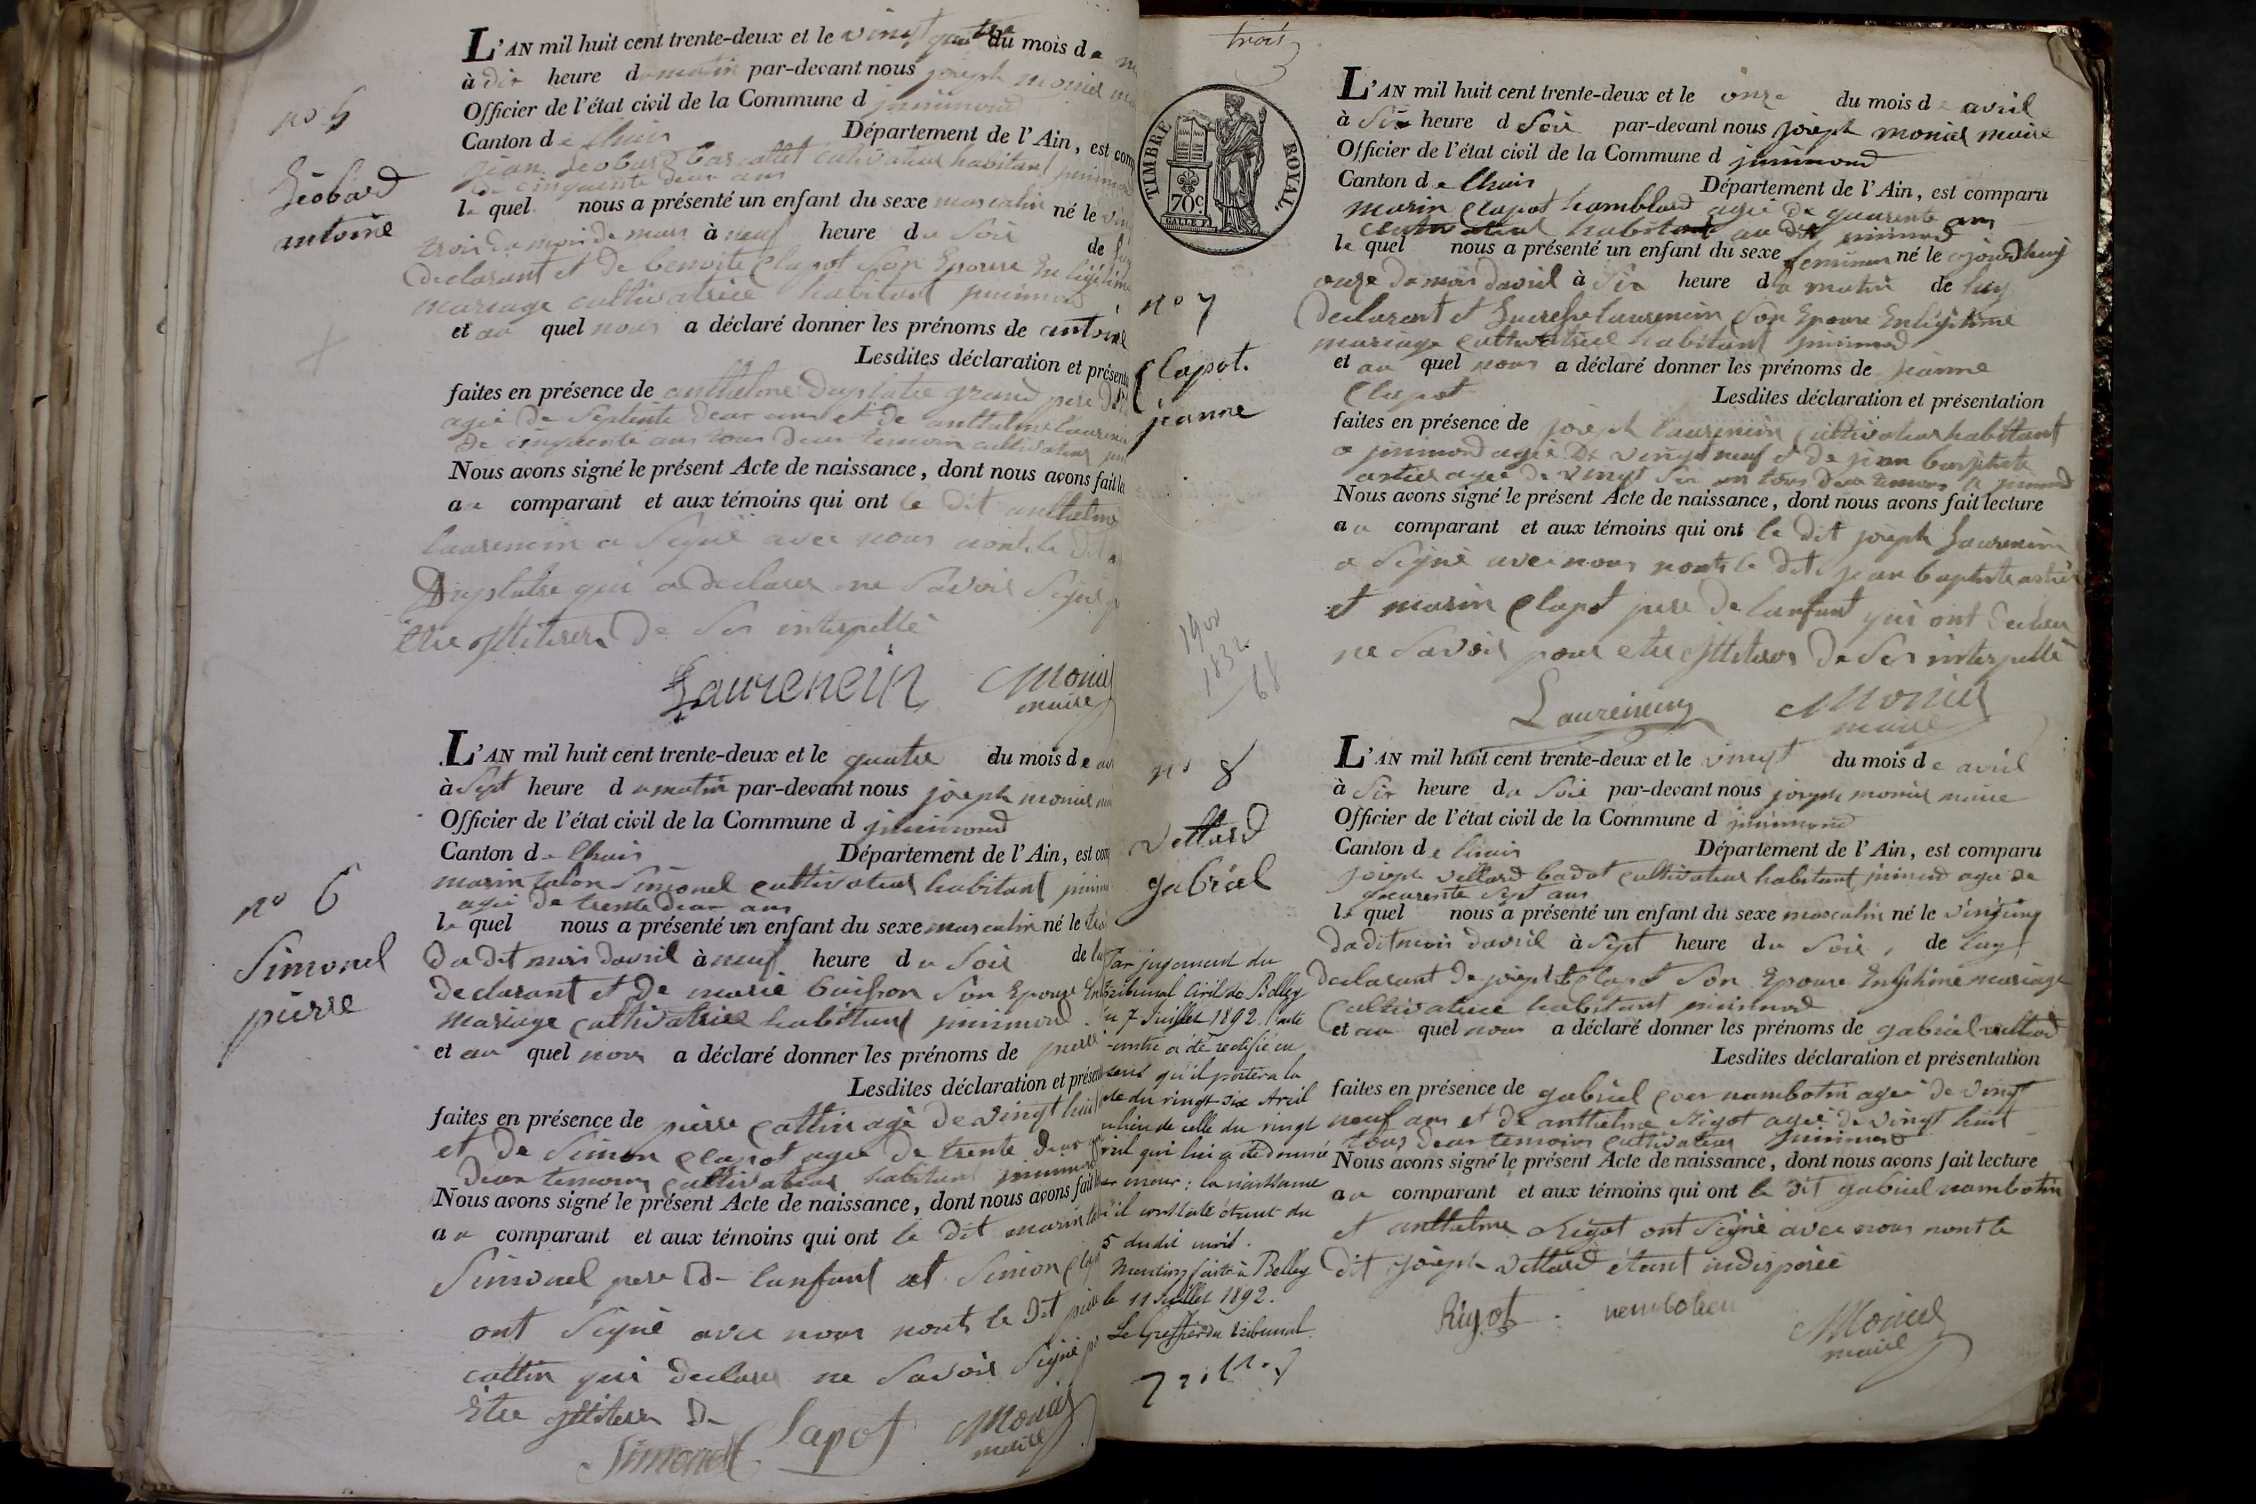 L'AN mil huit cent trente-deux et le vingt quatre du mois de
à dix heure du matin par-devant nous joseph moniel
Officier de l'état civil de la Commune d
Canton de lhuis Département de l'Ain, est
jean géobard cultivateur habitant
de cinquante deux ans
no 5
géobard
antoine
le quel nous a présenté un enfant du sexe masculin né le
trois du mois de mars à neuf heure du Soir de
declarant et de benoite Clapot Son Epouse En légitime
mariage cultivatrice habitant
et au quel nous a déclaré donner les prénoms de antoine
Lesdites déclaration et
faites en présence de anthelme Duplatre grand pere
agé de Septente deux ans et de anthelme laurencin
de cinquante ans tous deux temoin cultivateur
Nous avons signé le présent Acte de naissance, dont nous avons fait
au comparant et aux témoins qui ont le dit anthelme
laurencin a Signé avec nous le dit
Duplatre qui a declarer ne Savoir Signé
Etre de Ses interpellé
Laurencin Moniel
maire
L'AN mil huit cent trente-deux et le quatre du mois de
à Sept heure du matin par-devant nous joseph moniel
Officier de l'état civil de la Commune d
Canton de lhuis Département de l'Ain, est
marin Simonel cultivateur habitant
agé de trente deux ans
no 6
Simonel
pierre
le quel nous a présenté un enfant du sexe masculin né le
du dit mois davril à neuf heure du Soir de
declarant et de marie buisson Son Epouse En
mariage cultivatrice habitant
et au quel nous a déclaré donner les prénoms de pierre
Lesdites déclaration et
faites en présence de pierre cattin agé de vingt huit
et de Simon clapot agé de trente deux
deux temoins cultivateur habitant
Nous avons signé le présent Acte de naissance, dont nous avons fait
au comparant et aux témoins qui ont le dit marin
Simonel pere de lanfant et Simon
ont Signé avec nous le dit
cattin qui declarer ne Savoir Signé
Etre de
Simonel Clapot Moniel
maire
trois
TIMBRE ROYAL
70c
L'AN mil huit cent trente-deux et le onze du mois de avril
à Six heure d Soir par-devant nous joseph moniel maire
Officier de l'état civil de la Commune d
Canton de lhuis Département de l'Ain, est comparu
marin Clapot agé de quarante ans
cultivateur habitant au dit
le quel nous a présenté un enfant du sexe feminin né le
onze du mois davril à Six heure du matin de luy
declarant et laurencin Son Epouse En légitime
mariage cultivatrice habitant
no 7
Clapot.
jeanne
et au quel nous a déclaré donner les prénoms de jeanne
Clapot Lesdites déclaration et présentation
faites en présence de joseph laurencin cultivateur habitant
a agé de vingt neuf et de jean baptiste
artier agé de vingt Six ans tous deux temoins a
Nous avons signé le présent Acte de naissance, dont nous avons fait lecture
au comparant et aux témoins qui ont le dit joseph laurencin
a Signé avec nous le dit jean baptiste
et marin Clapot pere de lanfant qui ont declarer
ne Savoir pour etre de Ses interpellé
1900
1832
68
Laurencin Moniel
maire
L'AN mil huit cent trente-deux et le vingt du mois de avril
à Six heure du Soir par-devant nous joseph moniel maire
Officier de l'état civil de la Commune d
Canton de lhuis Département de l'Ain, est comparu
joseph vettard badot cultivateur habitant agé de
quarente Sept ans
no 8
vettard
gabriel
le quel nous a présenté un enfant du sexe masculin né le vingt cinq
du dit mois davril à Sept heure du Soir, de luy
declarant de Clapot Son Epouse En légitime mariage
Cultivatrice habitant
et au quel nous a déclaré donner les prénoms de gabriel vettard
Lesdites déclaration et présentation
faites en présence de gabriel nambotin agé de vingt
neuf ans et de anthelme Rigot agé de vingt huit
tous deux temoins cultivateur
Nous avons signé le présent Acte de naissance, dont nous avons fait lecture
au comparant et aux témoins qui ont le dit gabriel nambotin
et anthelme Rigot ont Signé avec nous le
dit joseph vettard étant indisposée
Rigot nembotin Moniel
maire
Par jugement du
Tribunal Civil de Belley
du 7 Juillet 1892. l'acte
-contre a été rectifié en
sens qu'il portera la
date du vingt-six Avril
au lieu de celle du vingt
avril qui lui a été donnée
par erreur; la naissance
qu'il constate étant du
5 dudit mois.
Mention faite à Belley
le 11 Juillet 1892.
Le Greffier du tribunal.